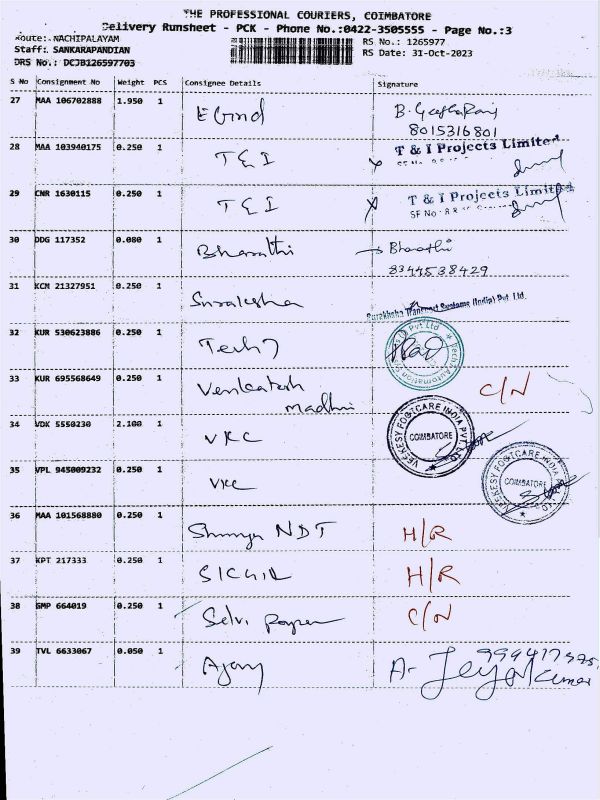 THE PROFESSIONAL COURIERS, COIMBATORE
Delivery Runsheet - PCK - Phone No.:0422-3505555 - Page No.:3
Route:- NACHIPALAYAM
Staff:- SANKARAPANDIAN
DRS No.: DCJB126597703
RS No.: 1265977
RS Date: 31-Oct-2023
S No Consignment No Weight PCS Consignee Details Signature
27 MAA 106702888 1.950 1
8015316801
28 MAA 103940175 0.250 1 T & I T & I Projects Limited
29 CNR 1630115 0.250 1 T & I T & I Projects Limited
SF No
30 DDG 117352 0.080 1 Bharathi Bharathi
8344538429
31 KCM 21327951 0.250 1 Suraksha Surakhsha Transport Systems (India) Pvt. Ltd.
32 KUR 530623886 0.250 1 Tech
33 KUR 695568649 0.250 1 Venkatesh C/N
34 VDK 5550230 2.100 1 VKC VEEKESY FOOTCARE INDIA PVT LTD COIMBATORE
35 VPL 945009232 0.250 1 VKC VEEKESY FOOTCARE INDIA PVT LTD COIMBATORE
36 MAA 101568880 0.250 1 NDT H/R
37 KPT 217333 0.250 1 H/R
38 GMP 664019 0.250 1 Selvi C/N
39 TVL 6633067 0.050 1 Ajay A-